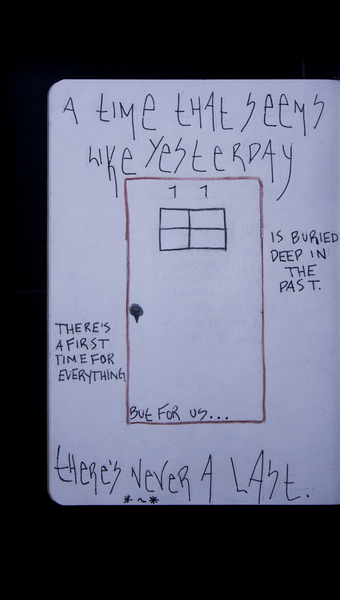 A TIME THAT SEEMS
LIKE YESTERDAY
11
IS BURIED
DEEP IN
THE
PAST.
THERE'S
A FIRST
TIME FOR
EVERYTHING
BUT FOR US...
THERE'S NEVER A LAST.
*~*